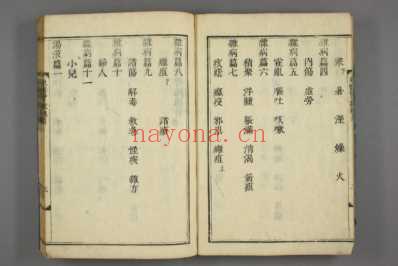 寒 暑 溼 燥 火
雜病篇四
內傷 虛勞
雜病篇五
霍亂 嘔吐 咳嗽
雜病篇六
積聚 浮腫 脹滿 消渴 黃疸
雜病篇七
痎瘧 瘟疫 邪祟 癰疽上
雜病篇八
癰疽下 諸瘡
雜病篇九
諸傷 解毒 救急 怪疾 雜方
雜病篇十
婦人
雜病篇十一
小兒
湯液篇一
nayona.cn